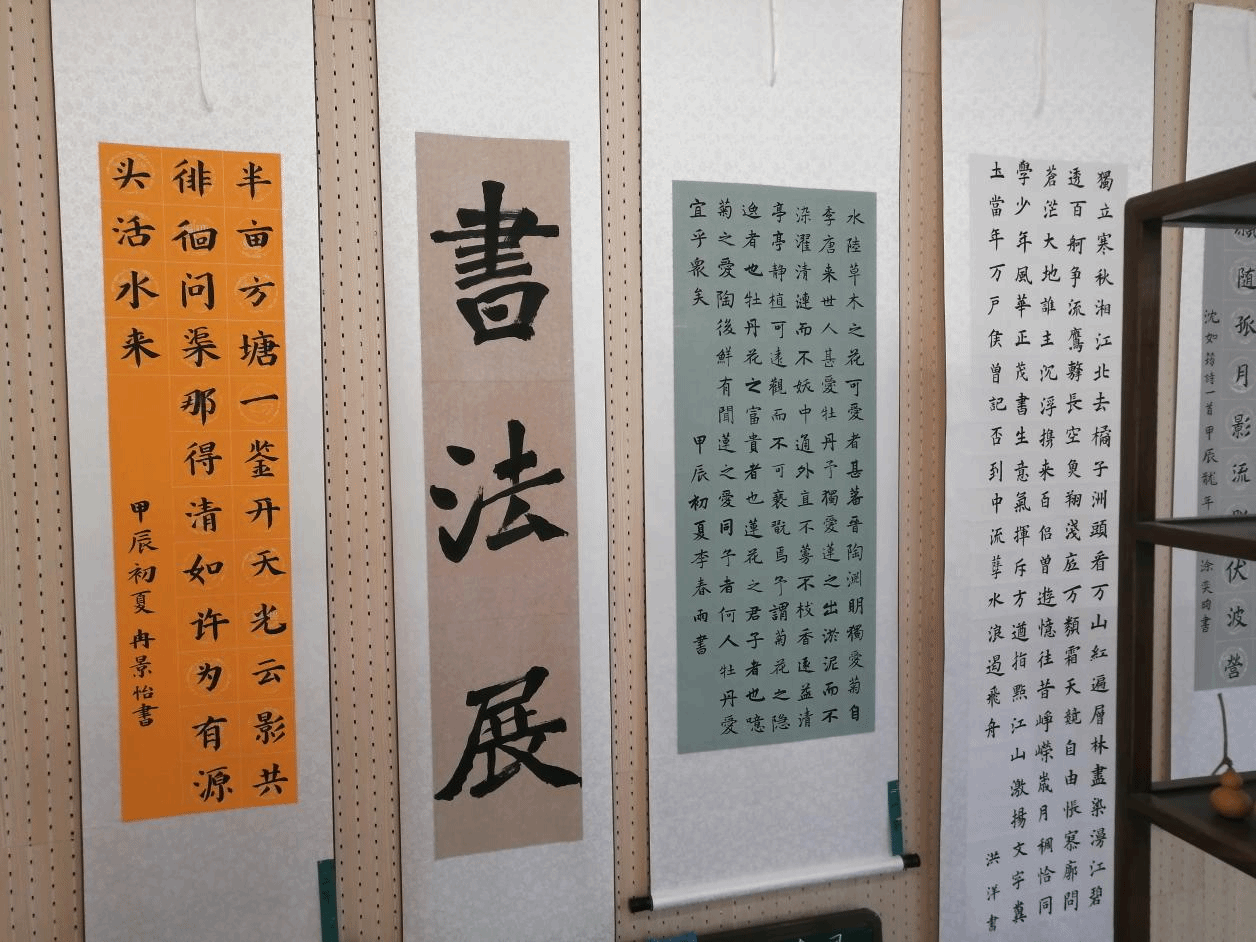 半亩方塘一鉴开天光云影共
徘徊问渠那得清如许为有源
头活水来
甲辰初夏 冉景怡書
書法展
水陸草木之花可愛者甚蕃晉陶渊明獨愛菊自
李唐来世人甚愛牡丹予獨愛蓮之出淤泥而不
染濯清漣而不妖中通外直不蔓不枝香遠益清
亭亭静植可遠觀而不可褻翫焉予謂菊花之隐
逸者也牡丹花之富貴者也蓮花之君子者也噫
菊之愛陶後鮮有聞蓮之愛同予者何人牡丹愛
宜乎衆矣 甲辰初夏李春雨書
獨立寒秋湘江北去橘子洲頭看万山紅遍層林盡染漫江碧
透百舸争流鷹擊長空魚翔淺底万類霜天競自由悵寥廓問
蒼茫大地誰主沉浮携来百侣曾遊憶往昔崢嶸歲月稠恰同
學少年風華正茂書生意氣揮斥方遒指點江山激揚文字糞
土當年万户侯曾記否到中流擊水浪遏飛舟 洪洋書
随孤月影流 伏波營
沈如筠詩一首甲辰龍年 書